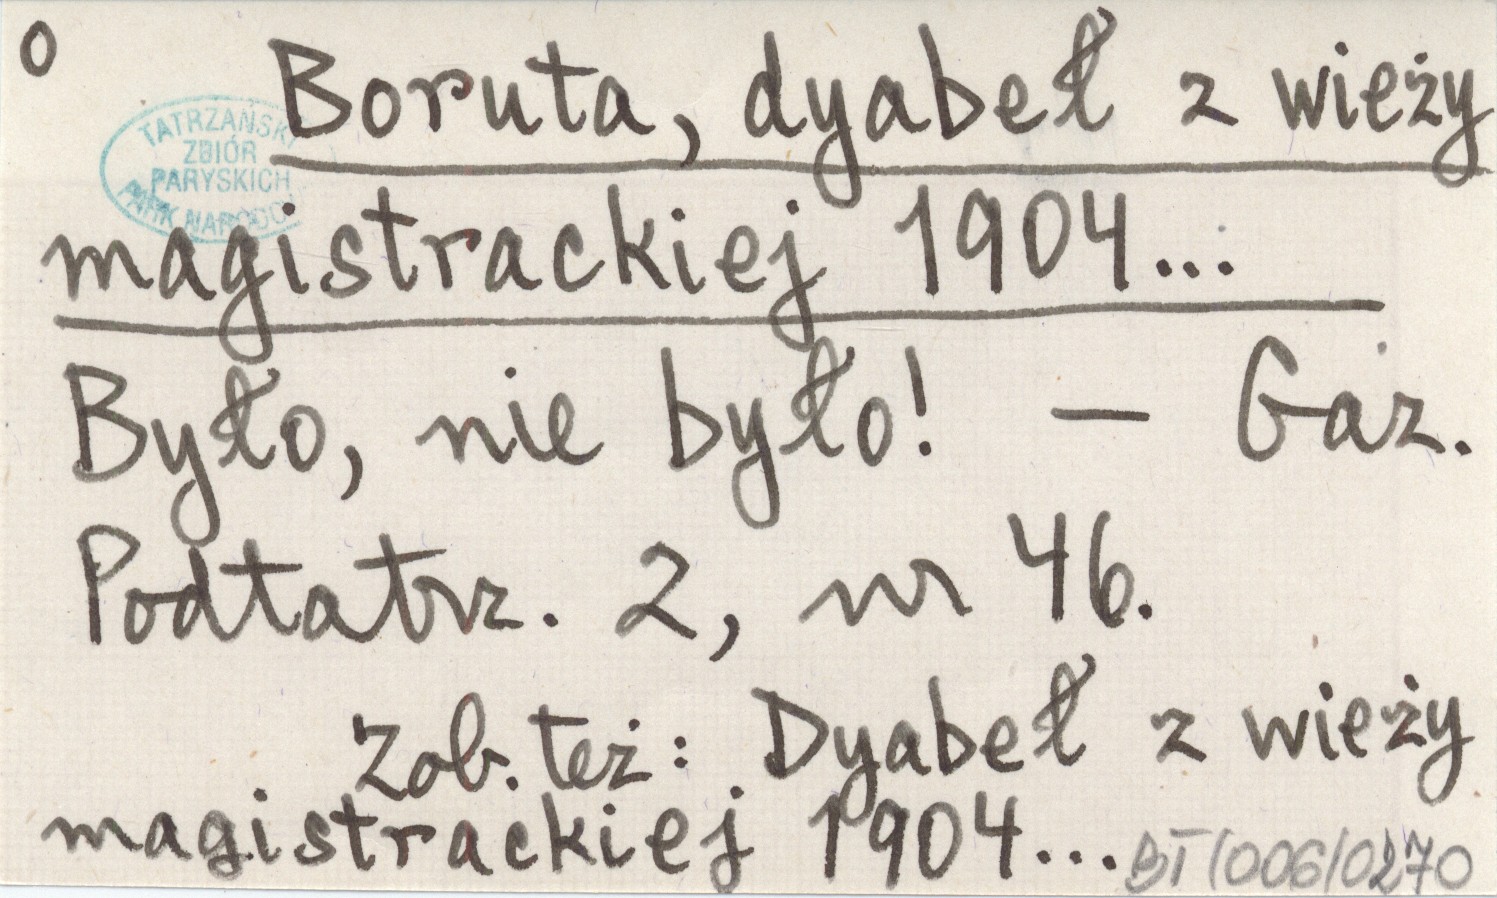 o
Boruta, dyabeł z wieży
TATRZAŃSKI
ZBIÓR
PARYSKICH
PARK NARODOW
magistrackiej 1904...
Było, nie było! — Gaz.
Podtatrz. 2, nr 46.
Zob. też: Dyabeł z wieży
magistrackiej 1904...
BT/006/0270